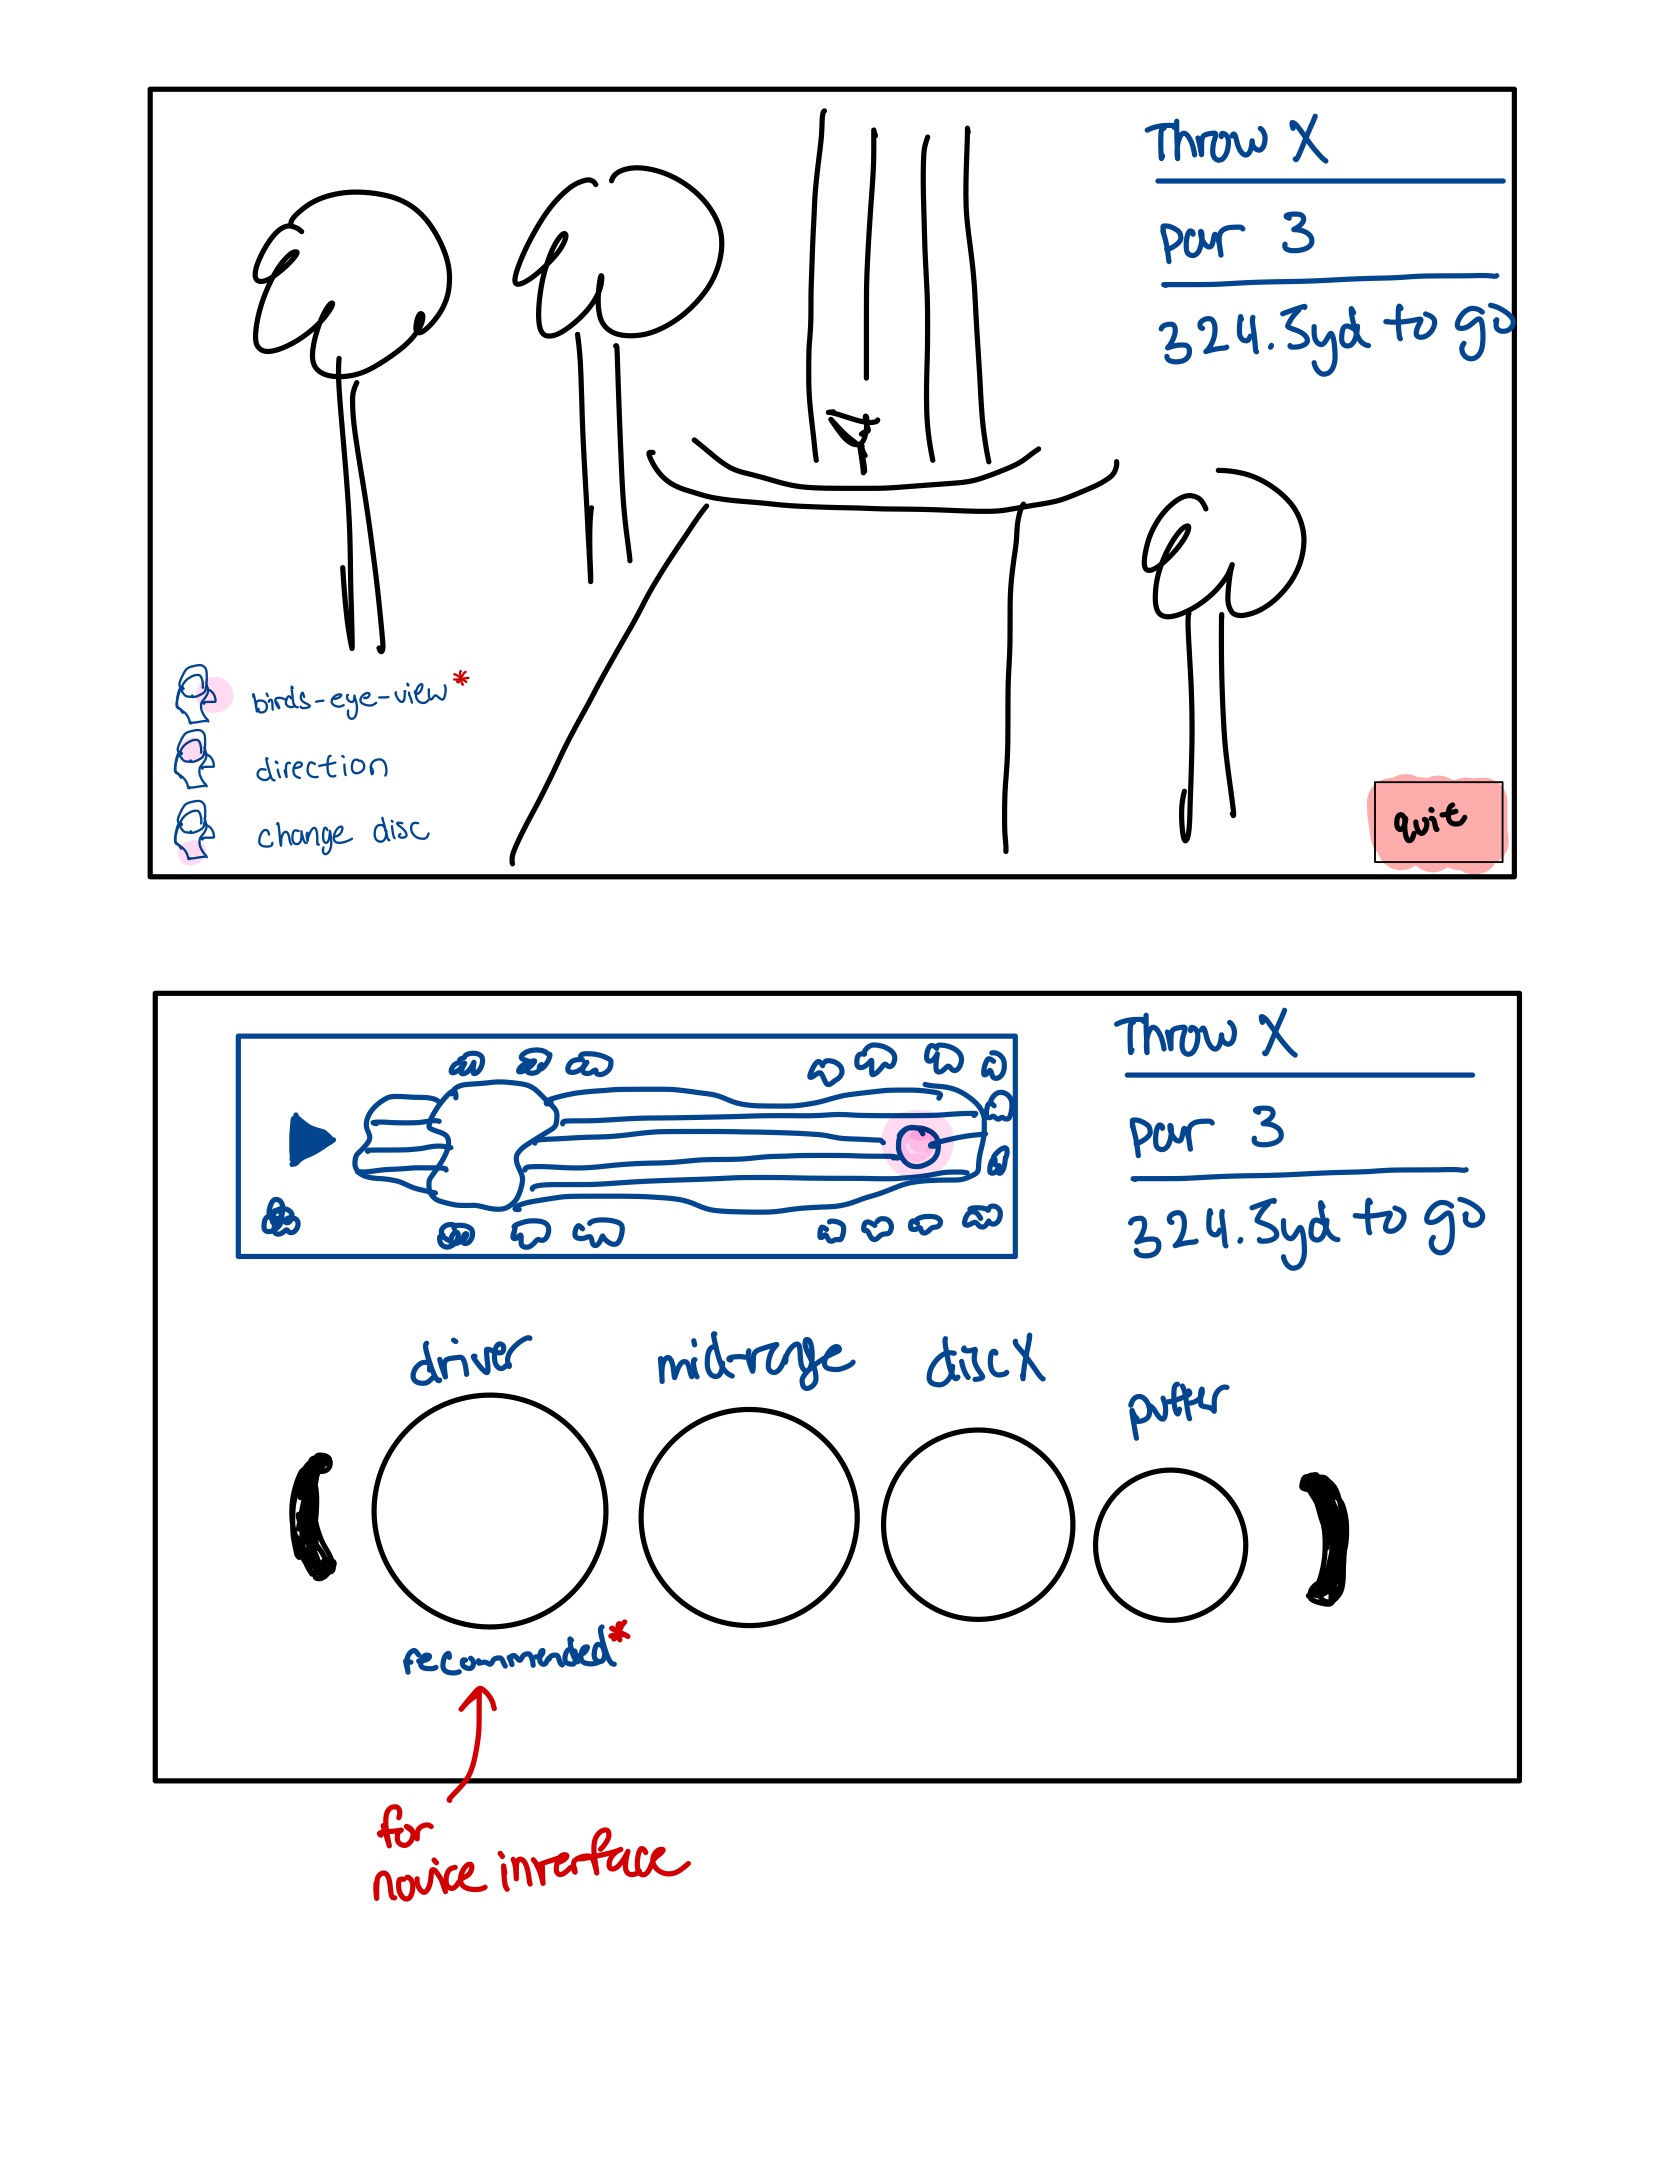 Throw X
par 3
324.5yd to go
birds-eye-view*
direction
change disc
quit
Throw X
par 3
324.5yd to go
driver
mid-range
disc X
putter
recommended*
for
novice interface